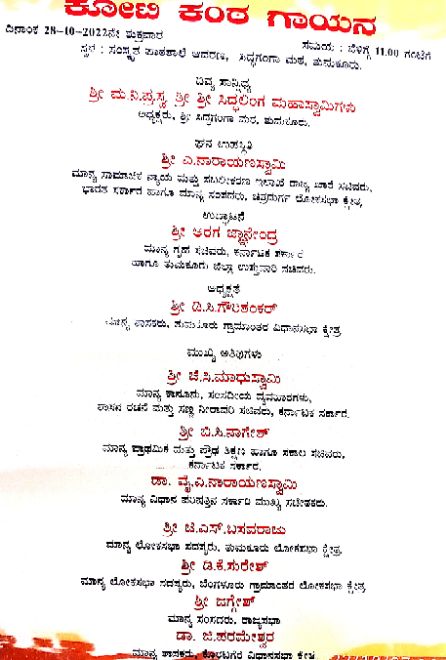 ಕೋಟಿ ಕಂಠ ಗಾಯನ
ದಿನಾಂಕ 28-10-2022ನೇ ಶುಕ್ರವಾರ
ಸಮಯ : ಬೆಳಿಗ್ಗೆ 11.00 ಗಂಟೆಗೆ
ಸ್ಥಳ : ಸಂಸ್ಕೃತ ಪಾಠಶಾಲೆ ಆವರಣ, ಸಿದ್ಧಗಂಗಾ ಮಠ, ತುಮಕೂರು.
ದಿವ್ಯ ಸಾನ್ನಿಧ್ಯ
ಶ್ರೀ ಮ.ನಿ.ಪ್ರ.ಸ್ವ ಶ್ರೀ ಶ್ರೀ ಸಿದ್ಧಲಿಂಗ ಮಹಾಸ್ವಾಮಿಗಳು
ಅಧ್ಯಕ್ಷರು, ಶ್ರೀ ಸಿದ್ಧಗಂಗಾ ಮಠ, ತುಮಕೂರು.
ಘನ ಉಪಸ್ಥಿತಿ
ಶ್ರೀ ಎ.ನಾರಾಯಣಸ್ವಾಮಿ
ಮಾನ್ಯ ಸಾಮಾಜಿಕ ನ್ಯಾಯ ಮತ್ತು ಸಬಲೀಕರಣ ಇಲಾಖೆ ರಾಜ್ಯ ಖಾತೆ ಸಚಿವರು,
ಭಾರತ ಸರ್ಕಾರ ಹಾಗೂ ಮಾನ್ಯ ಸಂಸದರು, ಚಿತ್ರದುರ್ಗ ಲೋಕಸಭಾ ಕ್ಷೇತ್ರ
ಉದ್ಘಾಟನೆ
ಶ್ರೀ ಅರಗ ಜ್ಞಾನೇಂದ್ರ
ಮಾನ್ಯ ಗೃಹ ಸಚಿವರು, ಕರ್ನಾಟಕ ಸರ್ಕಾರ
ಹಾಗೂ ತುಮಕೂರು ಜಿಲ್ಲಾ ಉಸ್ತುವಾರಿ ಸಚಿವರು.
ಅಧ್ಯಕ್ಷತೆ
ಶ್ರೀ ಡಿ.ಸಿ.ಗೌರಿಶಂಕರ್
ಮಾನ್ಯ ಶಾಸಕರು, ತುಮಕೂರು ಗ್ರಾಮಾಂತರ ವಿಧಾನಸಭಾ ಕ್ಷೇತ್ರ
ಮುಖ್ಯ ಅತಿಥಿಗಳು
ಶ್ರೀ ಜೆ.ಸಿ.ಮಾಧುಸ್ವಾಮಿ
ಮಾನ್ಯ ಕಾನೂನು, ಸಂಸದೀಯ ವ್ಯವಹಾರಗಳು,
ಶಾಸನ ರಚನೆ ಮತ್ತು ಸಣ್ಣ ನೀರಾವರಿ ಸಚಿವರು, ಕರ್ನಾಟಕ ಸರ್ಕಾರ.
ಶ್ರೀ ಬಿ.ಸಿ.ನಾಗೇಶ್
ಮಾನ್ಯ ಪ್ರಾಥಮಿಕ ಮತ್ತು ಪ್ರೌಢ ಶಿಕ್ಷಣ ಹಾಗೂ ಸಕಾಲ ಸಚಿವರು,
ಕರ್ನಾಟಕ ಸರ್ಕಾರ.
ಡಾ. ವೈ.ಎ.ನಾರಾಯಣಸ್ವಾಮಿ
ಮಾನ್ಯ ವಿಧಾನ ಪರಿಷತ್ತಿನ ಸರ್ಕಾರಿ ಮುಖ್ಯ ಸಚೇತಕರು.
ಶ್ರೀ ಜಿ.ಎಸ್.ಬಸವರಾಜು
ಮಾನ್ಯ ಲೋಕಸಭಾ ಸದಸ್ಯರು, ತುಮಕೂರು ಲೋಕಸಭಾ ಕ್ಷೇತ್ರ.
ಶ್ರೀ ಡಿ.ಕೆ.ಸುರೇಶ್
ಮಾನ್ಯ ಲೋಕಸಭಾ ಸದಸ್ಯರು, ಬೆಂಗಳೂರು ಗ್ರಾಮಾಂತರ ಲೋಕಸಭಾ ಕ್ಷೇತ್ರ
ಶ್ರೀ ಜಗ್ಗೇಶ್
ಮಾನ್ಯ ಸಂಸದರು, ರಾಜ್ಯಸಭಾ
ಡಾ. ಜಿ.ಪರಮೇಶ್ವರ
ಮಾನ್ಯ ಶಾಸಕರು, ಕೊರಟಗೆರೆ ವಿಧಾನಸಭಾ ಕ್ಷೇತ್ರ